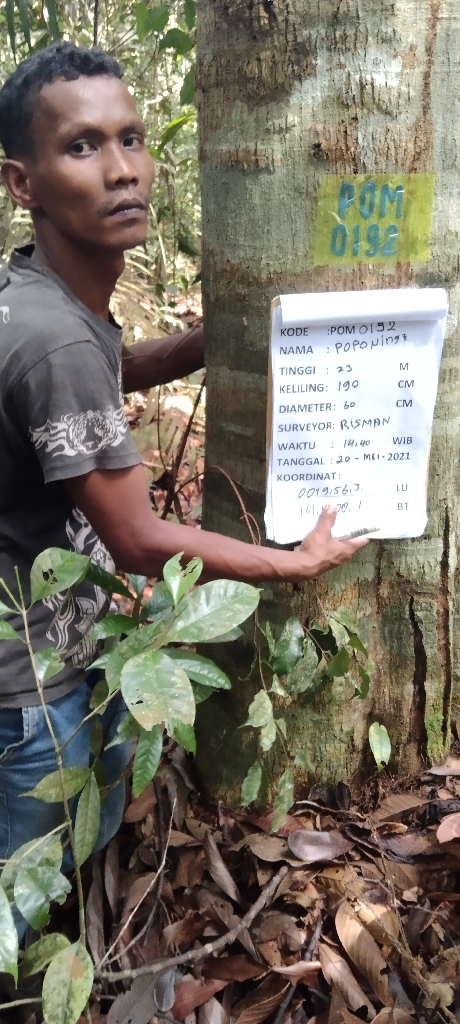 POM
0192
KODE :POM 0192
NAMA :
TINGGI : 23 M
KELILING: 190 CM
DIAMETER: 60 CM
SURVEYOR: RISMAN
WAKTU : 14,40 WIB
TANGGAL : 20 - MEI - 2021
KOORDINAT:
0019.56.3. LU
BT